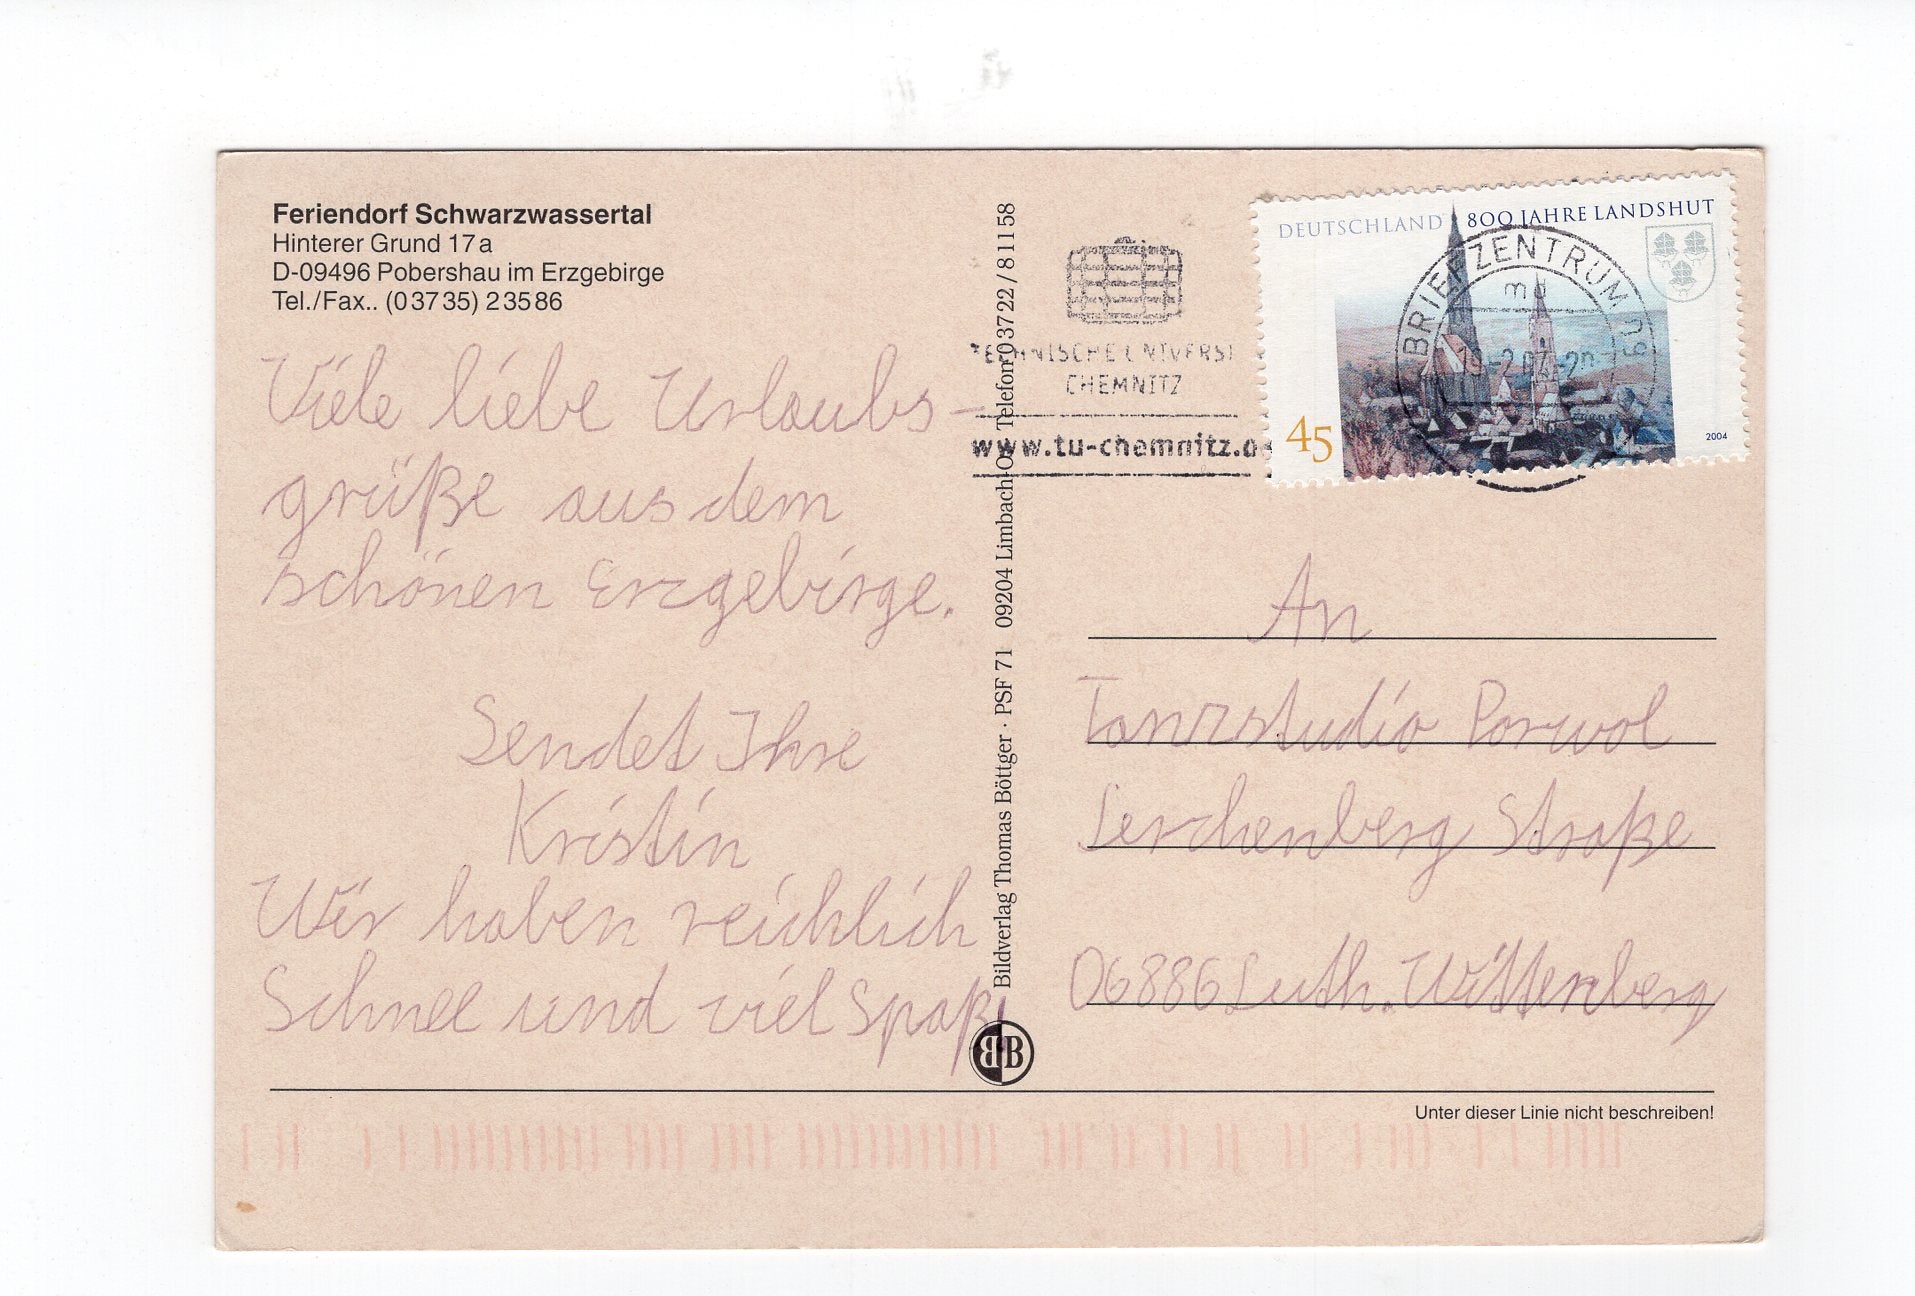 Feriendorf Schwarzwassertal
Hinterer Grund 17a
D-09496 Pobershau im Erzgebirge
Tel./Fax.. (03735) 23586
Viele liebe Urlaubs-
grüße aus dem
schönen Erzgebirge.
Sendet Ihre
Kristin
Wir haben reichlich
Schnee und viel Spaß!
Bildverlag Thomas Böttger · PSF 71 09204 Limbach-O. Telefon 03722/81158
BB
TECHNISCHE UNIVERSI
CHEMNITZ
www.tu-chemnitz.de
DEUTSCHLAND 800 JAHRE LANDSHUT
BRIEFZENTRUM 09
ma
45
2004
An
Tanzstudio Porwol
Lerchenberg Straße
06886 Luth. Wittenberg
Unter dieser Linie nicht beschreiben!